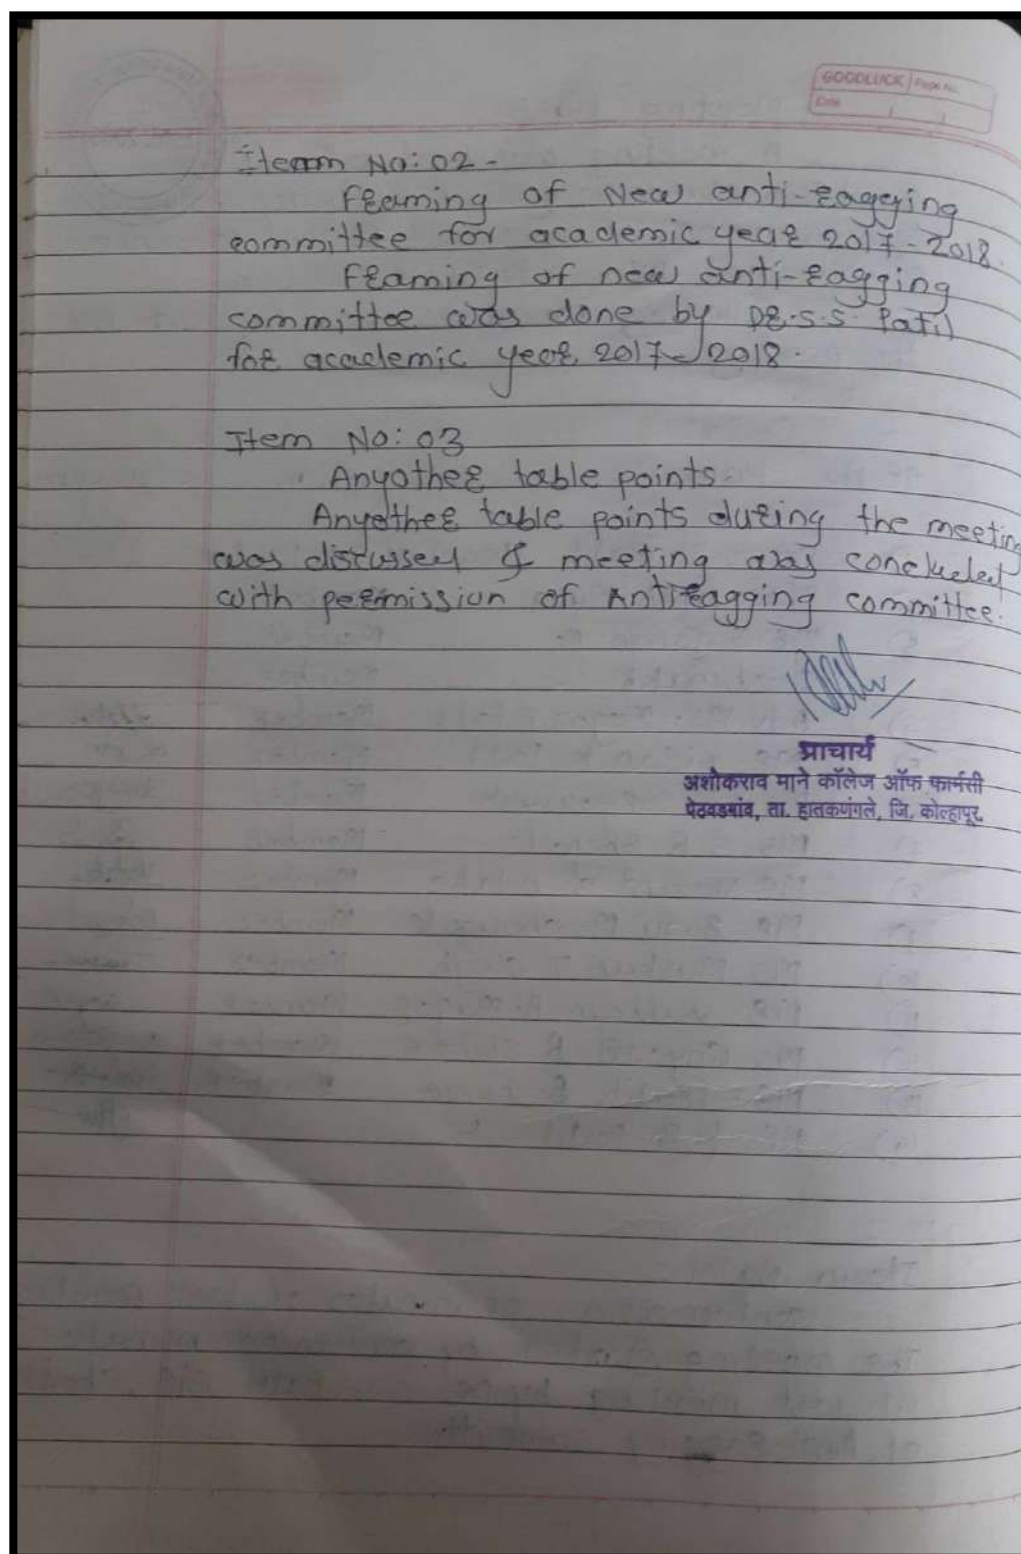 GOODLUCK Page No.
Date
Item No: 02 -
Framing of New anti-ragging
committee for academic year 2017-2018.
Framing of new anti-ragging
committee was done by Dr. S.S Patil
for academic year 2017-2018.
Item No: 03
Anyother table points.
Anyother table points during the meeting
was discussed & meeting was concluded
with permission of Antiragging committee.
प्राचार्य
अशोकराव माने कॉलेज ऑफ फार्मसी
पेठवडगांव, ता. हातकणंगले, जि. कोल्हापूर.